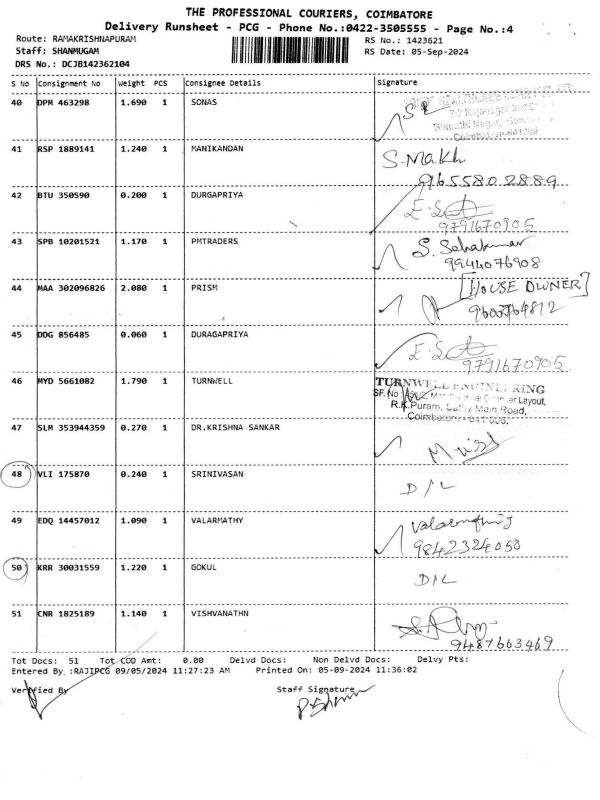 THE PROFESSIONAL COURIERS, COIMBATORE
Delivery Runsheet - PCG - Phone No.:0422-3505555 - Page No.:4
Route: RAMAKRISHNAPURAM RS No.: 1423621
Staff: SHANMUGAM RS Date: 05-Sep-2024
DRS No.: DCJB142362104
S No Consignment No Weight PCS Consignee Details Signature
40 DPM 463298 1.690 1 SONAS
41 RSP 1889141 1.240 1 MANIKANDAN
9655802889
42 BTU 350590 0.200 1 DURGAPRIYA
9791670905
43 SPB 10201521 1.170 1 PMTRADERS
9944076908
44 MAA 302096826 2.080 1 PRISM [HOUSE OWNER]
45 DDG 856485 0.060 1 DURAGAPRIYA
9791670905
46 MYD 5661082 1.790 1 TURNWELL TURNWELL ENGINEERING
Layout,
R.K.Puram, Sathy Main Road,
47 SLM 353944359 0.270 1 DR.KRISHNA SANKAR
48 VLI 175870 0.240 1 SRINIVASAN D/L
49 EDQ 14457012 1.090 1 VALARMATHY
9842324050
50 KRR 30031559 1.220 1 GOKUL D/L
51 CNR 1825189 1.140 1 VISHVANATHN
9487663469
Tot Docs: 51 Tot COD Amt: 0.00 Delvd Docs: Non Delvd Docs: Delvy Pts:
Entered By :RAJIPCG 09/05/2024 11:27:23 AM Printed On: 05-09-2024 11:36:02
Verified By Staff Signature